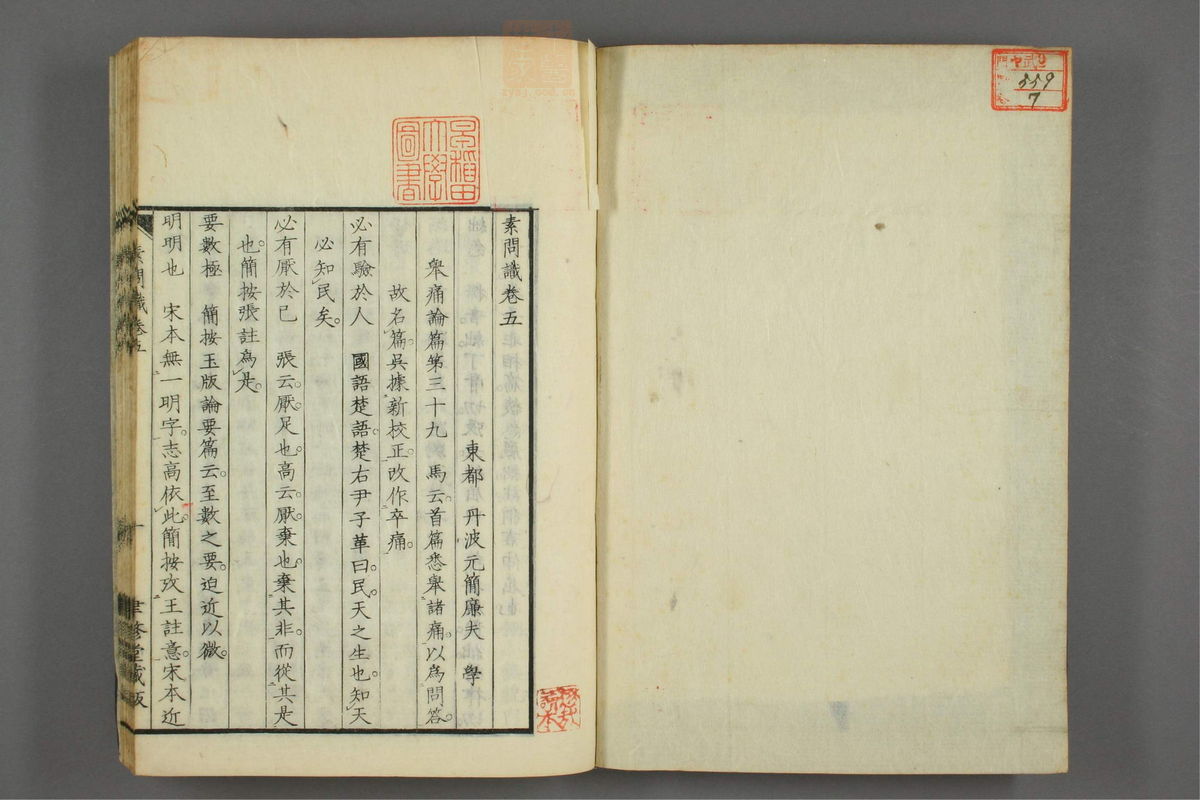 素問識卷五
東都 丹波元簡廉夫 學
舉痛論篇第三十九 馬云。首篇悉舉諸痛。以為問答。
故名篇。吳據新校正。改作卒痛。
必有驗於人 國語楚語。楚右尹子革曰。民。天之生也。知天
必知民矣。
必有厭於己 張云。厭。足也。高云。厭。棄也。棄其非。而從其是
也。簡按張註為是。
要數極 簡按玉版論要篇云。至數之要。迫近以微。
明明也 宋本無一明字。志高依此。簡按攷王註意。宋本近
素問識卷五
聿修堂藏版
早稻田大學圖書
559
7